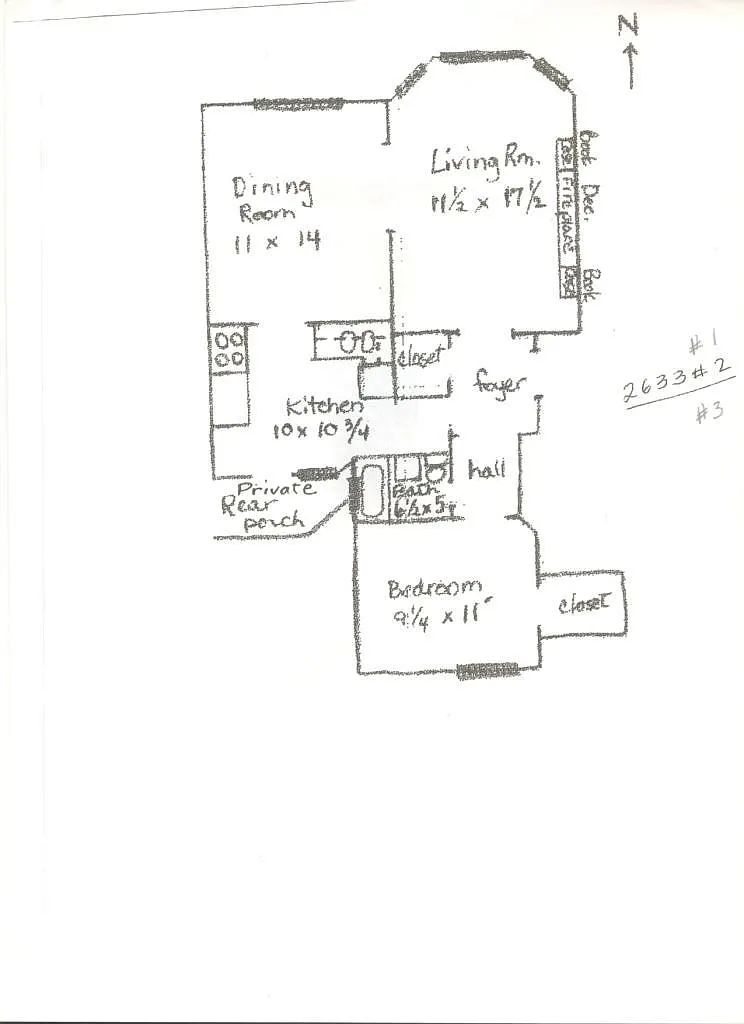 N
Living Rm.
11½ x 17½
Dining
Room
11 x 14
Book Dec. Book
Case Fireplace Case
closet
foyer
# 1
2633 # 2
# 3
Kitchen
10 x 10 ¾
hall
Private
Rear
porch
Bath
6½ x 5
Bedroom
9¼ x 11
closet